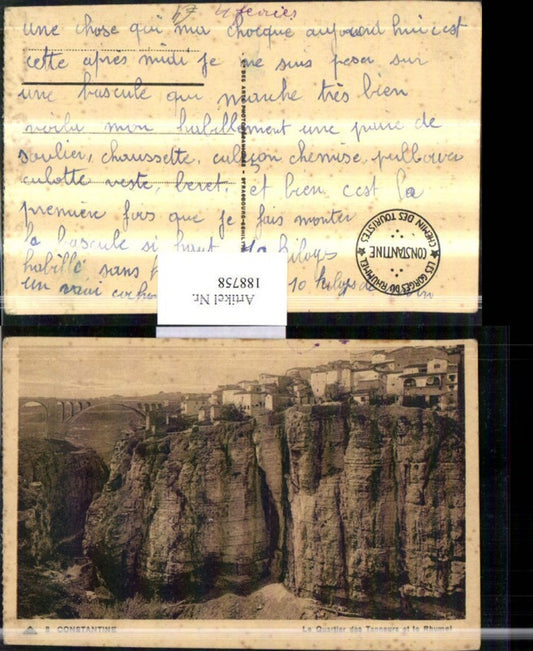 4 février
une chose qui ma choque aujourd hui c'est
cette après midi je me suis peser sur
une bascule qui marche très bien
voilu mon habillement une paire de
soulier, chaussette, culçon chemise, pullover
culotte veste, beret, et bien c'est la
première fois que je fais monter
la bascule si haut kiloges
habillé sans
un vrai 10 kilogs de
LES GORGES DU RHUMMEL
CONSTANTINE
CHEMIN DES TOURISTES
Artikel Nr.
188758
8 CONSTANTINE
Le Quartier des Tanneurs et le Rhumel